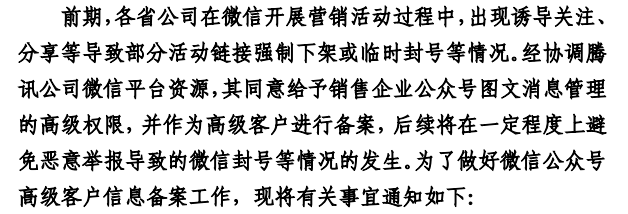 前期,各省公司在微信开展营销活动过程中,出现诱导关注、
分享等导致部分活动链接强制下架或临时封号等情况。经协调腾
讯公司微信平台资源,其同意给予销售企业公众号图文消息管理
的高级权限,并作为高级客户进行备案,后续将在一定程度上避
免恶意举报导致的微信封号等情况的发生。为了做好微信公众号
高级客户信息备案工作，现将有关事宜通知如下：